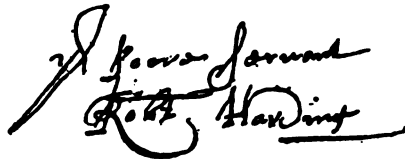 yʳ poore Servant
Robt Harding